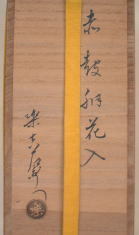 赤鼓胴花入
楽吉左衛門